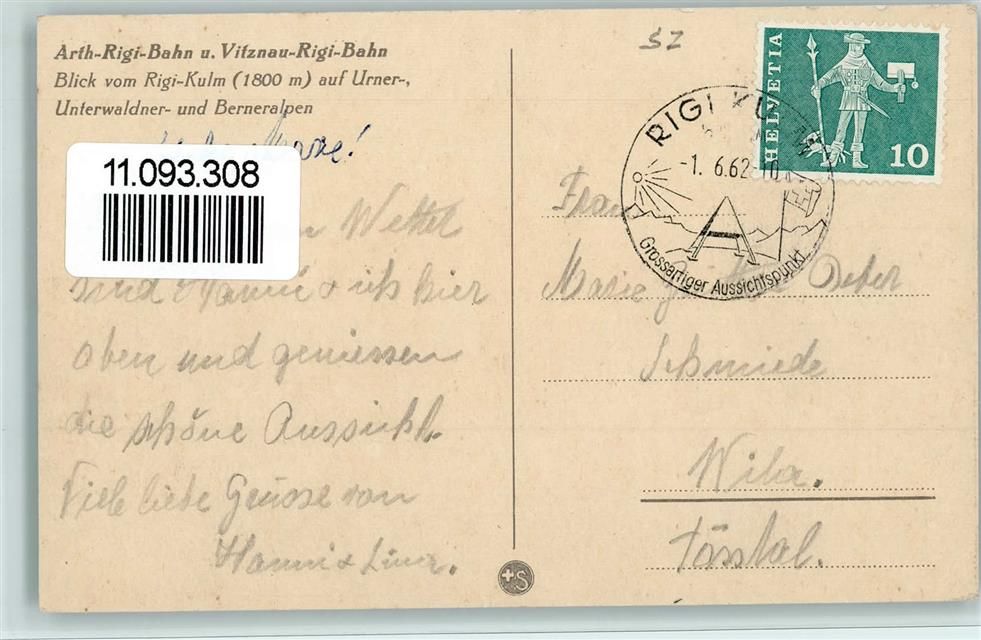 Arth-Rigi-Bahn u. Vitznau-Rigi-Bahn
Blick vom Rigi-Kulm (1800 m) auf Urner-,
Unterwaldner- und Berneralpen
11.093.308
Wetter
sind Hanni + ich hier
oben und geniessen
die schöne Aussicht.
Viele liebe Grüsse von
Hanni + Lina.
SZ
HELVETIA
10
RIGI KULM
-1. 6.62-10
Grossartiger Aussichtspunkt
Frau
Marie
Schmiede
Wila.
Tösstal.
+S